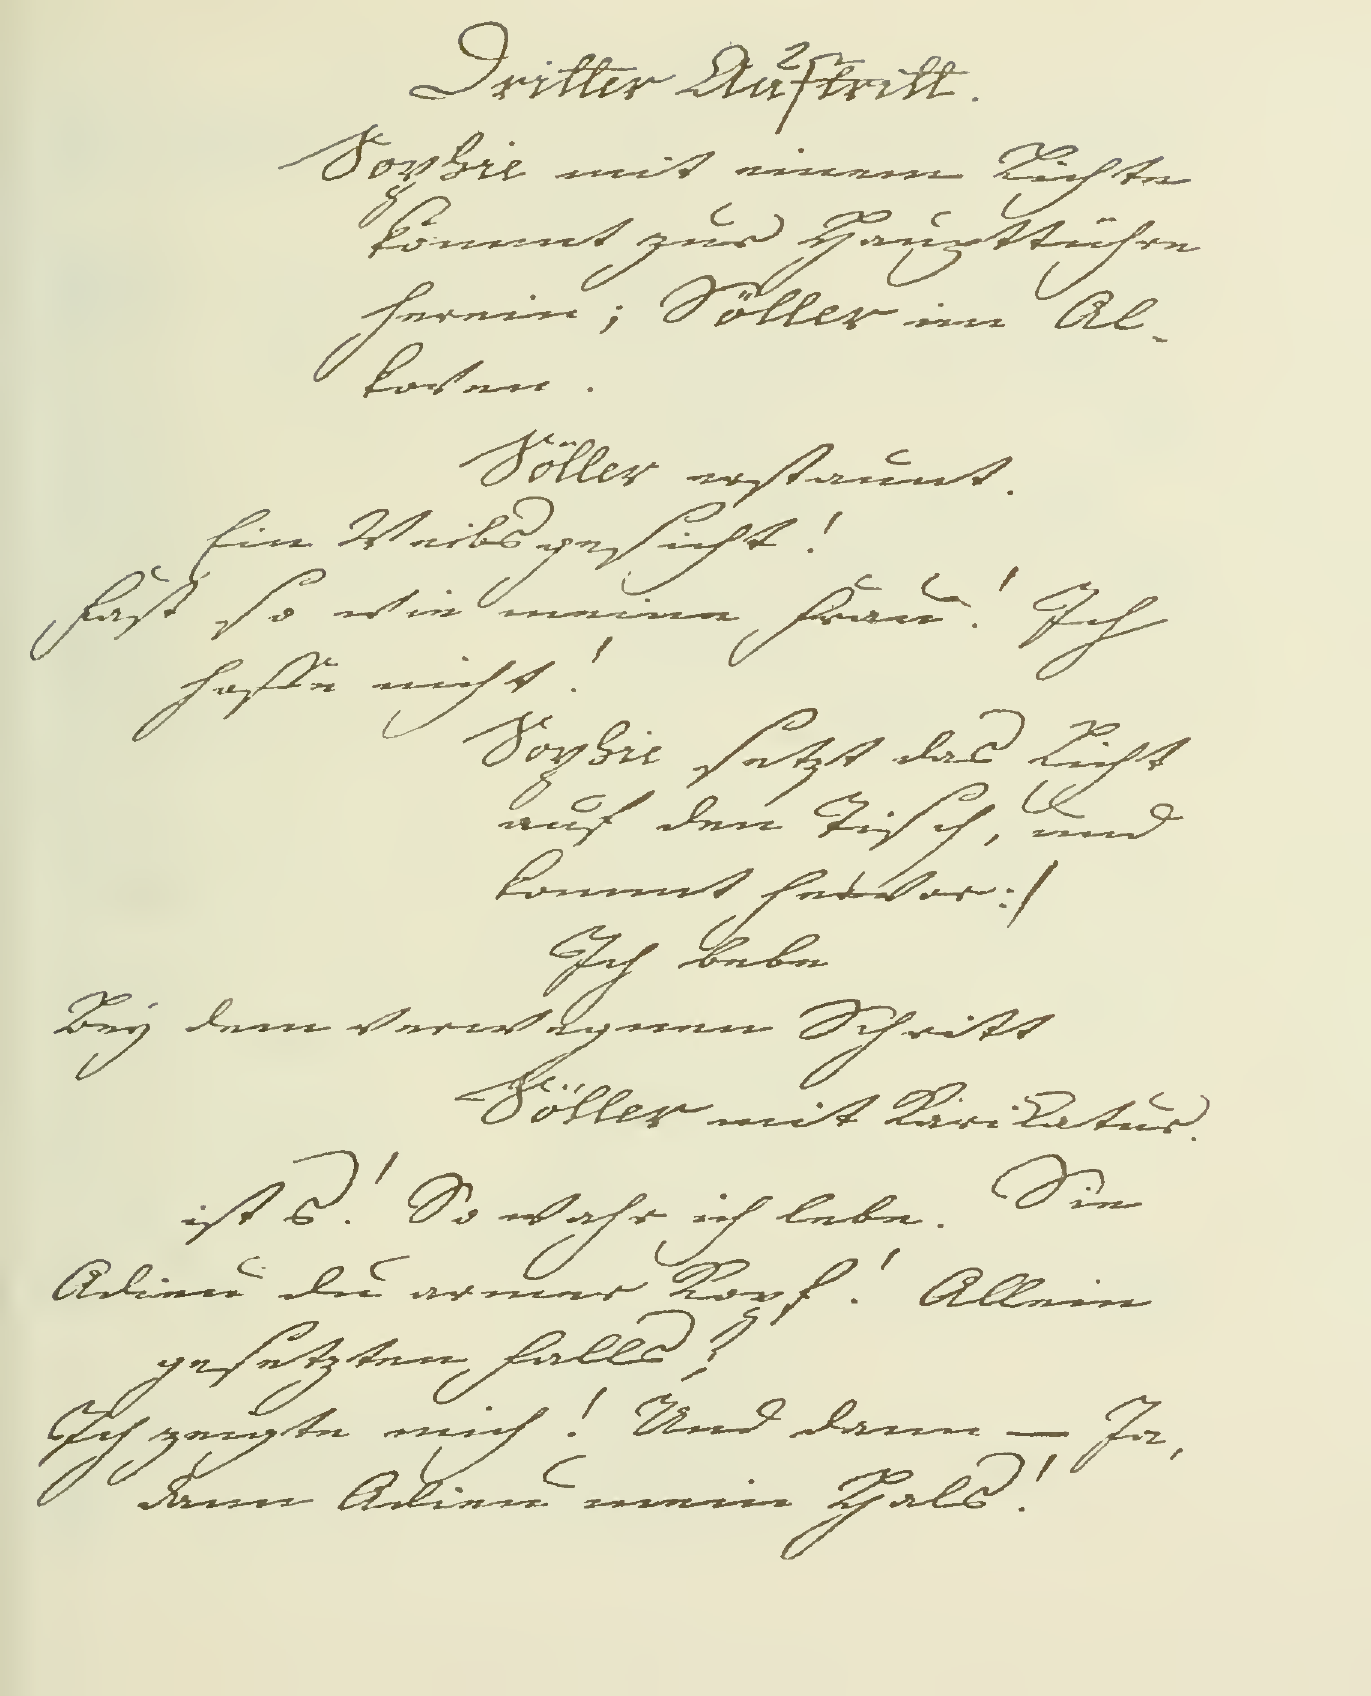 Dritter Auftritt.
Sophie mit einem Lichte
kömmt zur Haupttühre
herein; Söller im Al-
koven.
Söller erstaunt.
Ein Weibsgesicht!
Fast so wie meine Frau! Ich
hoffe nicht!
Sophie setzt das Licht
auf den Tisch, und
kommt hervor:/
Ich bebe
Bey dem verwegnen Schritt
Söller mit Karikatur.
ist s! So wahr ich lebe. Sie
Adieu du armer Kopf! Allein
gesetzten Falls?
Ich zeigte mich! Und dann — Ja,
dann Adieu mein Hals!